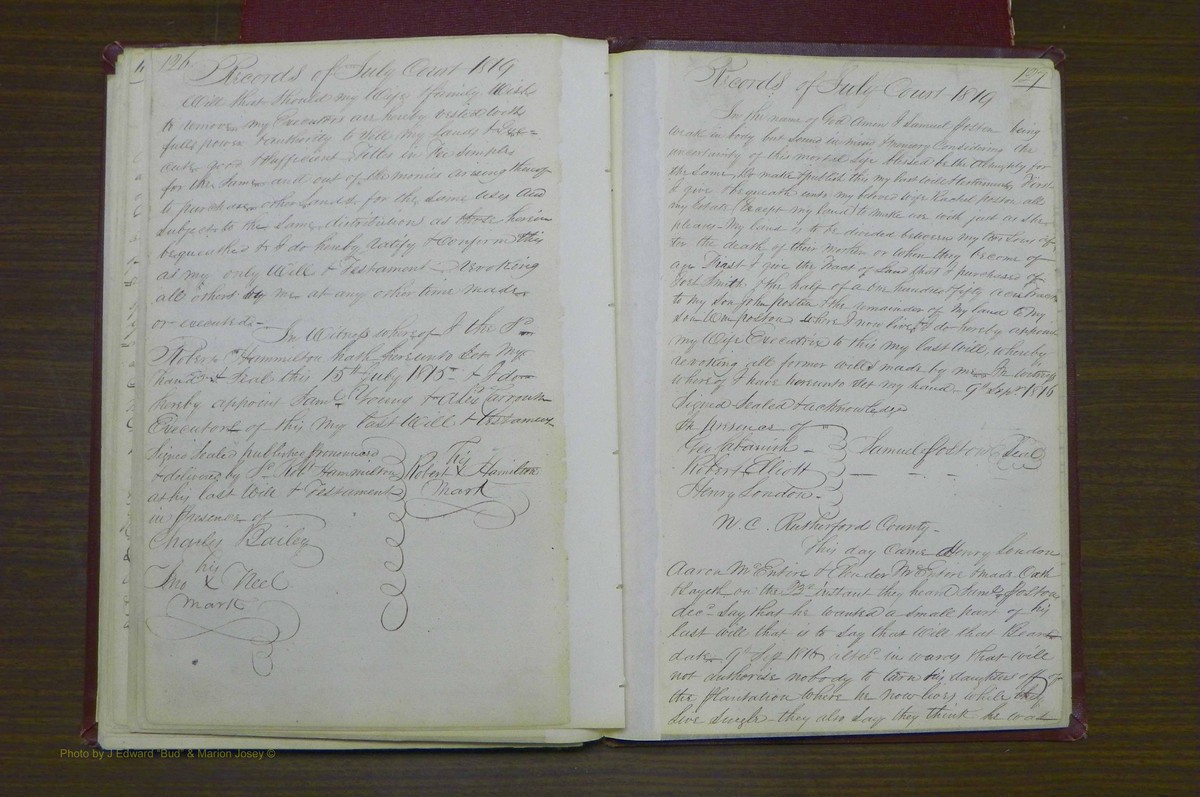 126
Records of July Court 1819
Will that should my Wife & family Wish
to remove my Executors are hereby vested with
full power & authority to sell my Lands &
good & sufficient Titles in Fee Simple
for the same and out of the monies arising thereof
to purchase other Lands for the same uses and
subject to the same distribution as those herein
bequeathed & I do hereby ratify & conform this
as my only Will & Testament revoking
all others by me at any other time made
or executed
In Witness whereof I the Sd
Robert Hammelton hath hereunto Set My
hand & Seal this 15th July 1815 & I do
hereby appoint Saml Young &
Executors of this My last Will & Testament
Signed Sealed published pronounced
& delivered by Sd Robt Hammelton
as his last Will & Testament
in presence of
Charles Bailey
his
Tho X Neel
mark
his
Robert X Hamilton
Mark
127
Records of July Court 1819
In the name of God Amen I Samuel Poston being
weak in body but Sound in mind & memory Considering the
uncertainty of this mortal life & blessed be the Almighty for
the Same, do make & publish this my last will & testament First
I give & bequeath unto my beloved wife Rachel Poston all
my Estate (Except my land) to make use with just as she
pleases My land is to be devided between my two sons after
the death of their mother or when they become of
age First I give the Tract of Land that I purchased of
Smith & the half of a one hundred & fifty acre tract
to my son John Poston & the remainder of my land to my
son Wm Poston where I now live & I do hereby appoint
my Wife Executrix to this my last Will, whereby
revoking all former wills made by me In witness
whereof I have hereunto Set my hand 9th Sepr 1816
Signed Sealed & acknowledged
in presence of
Robert Elliott
Henry London
Samuel Poston Seal
N. C. Rutherford County
This day Came Henry London
Aaron McEntire & McEntire & made Oath
& Sayeth on the instant they heard Saml Poston
decd Say that he wanted a small part of his
last will that is to say that Will that Bears
date 9th Sep 1816 in words that will
not authorise nobody to turn his daughters off of
the plantation where he now lives while they
live Single they also Say they think he was